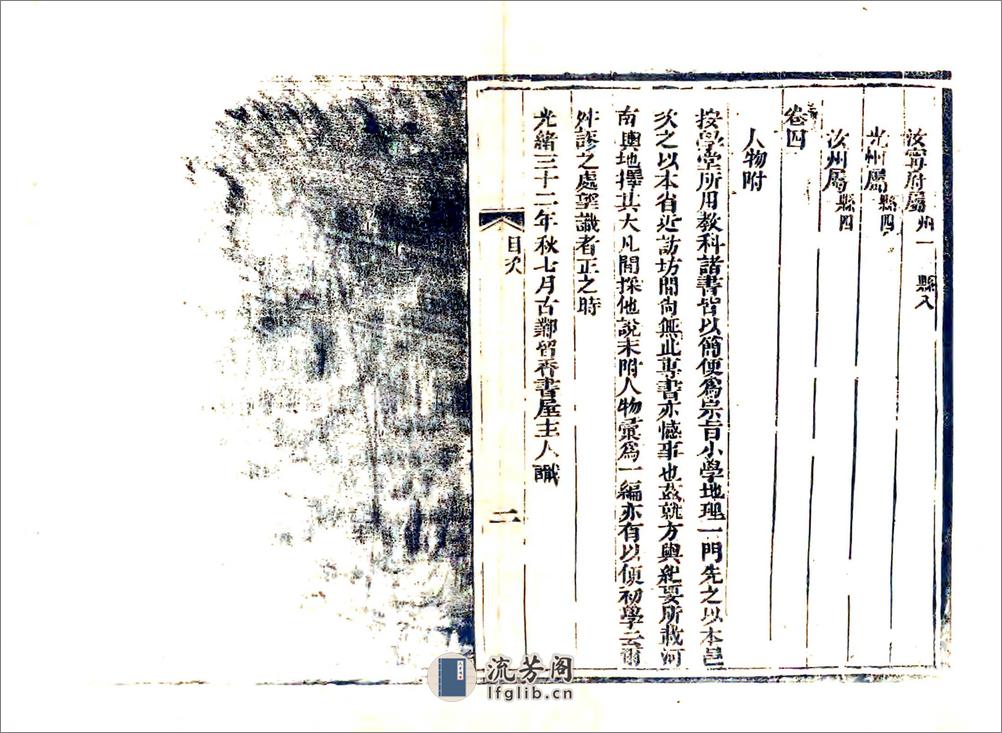 汝寧府屬州一 縣八
光州屬縣四
汝州屬縣四
卷四
人物附
按學堂所用教科諸書皆以簡便爲宗旨小學地理一門先之以本邑
次之以本省近訪坊間尚無此專書亦憾事也茲就方輿紀要所載河
南輿地擇其大凡間採他說末附人物彙爲一編亦有以便初學云爾
舛謬之處望識者正之時
光緒三十二年秋七月古鄴留香書屋主人識
目次
二
流芳阁
lfglib.cn